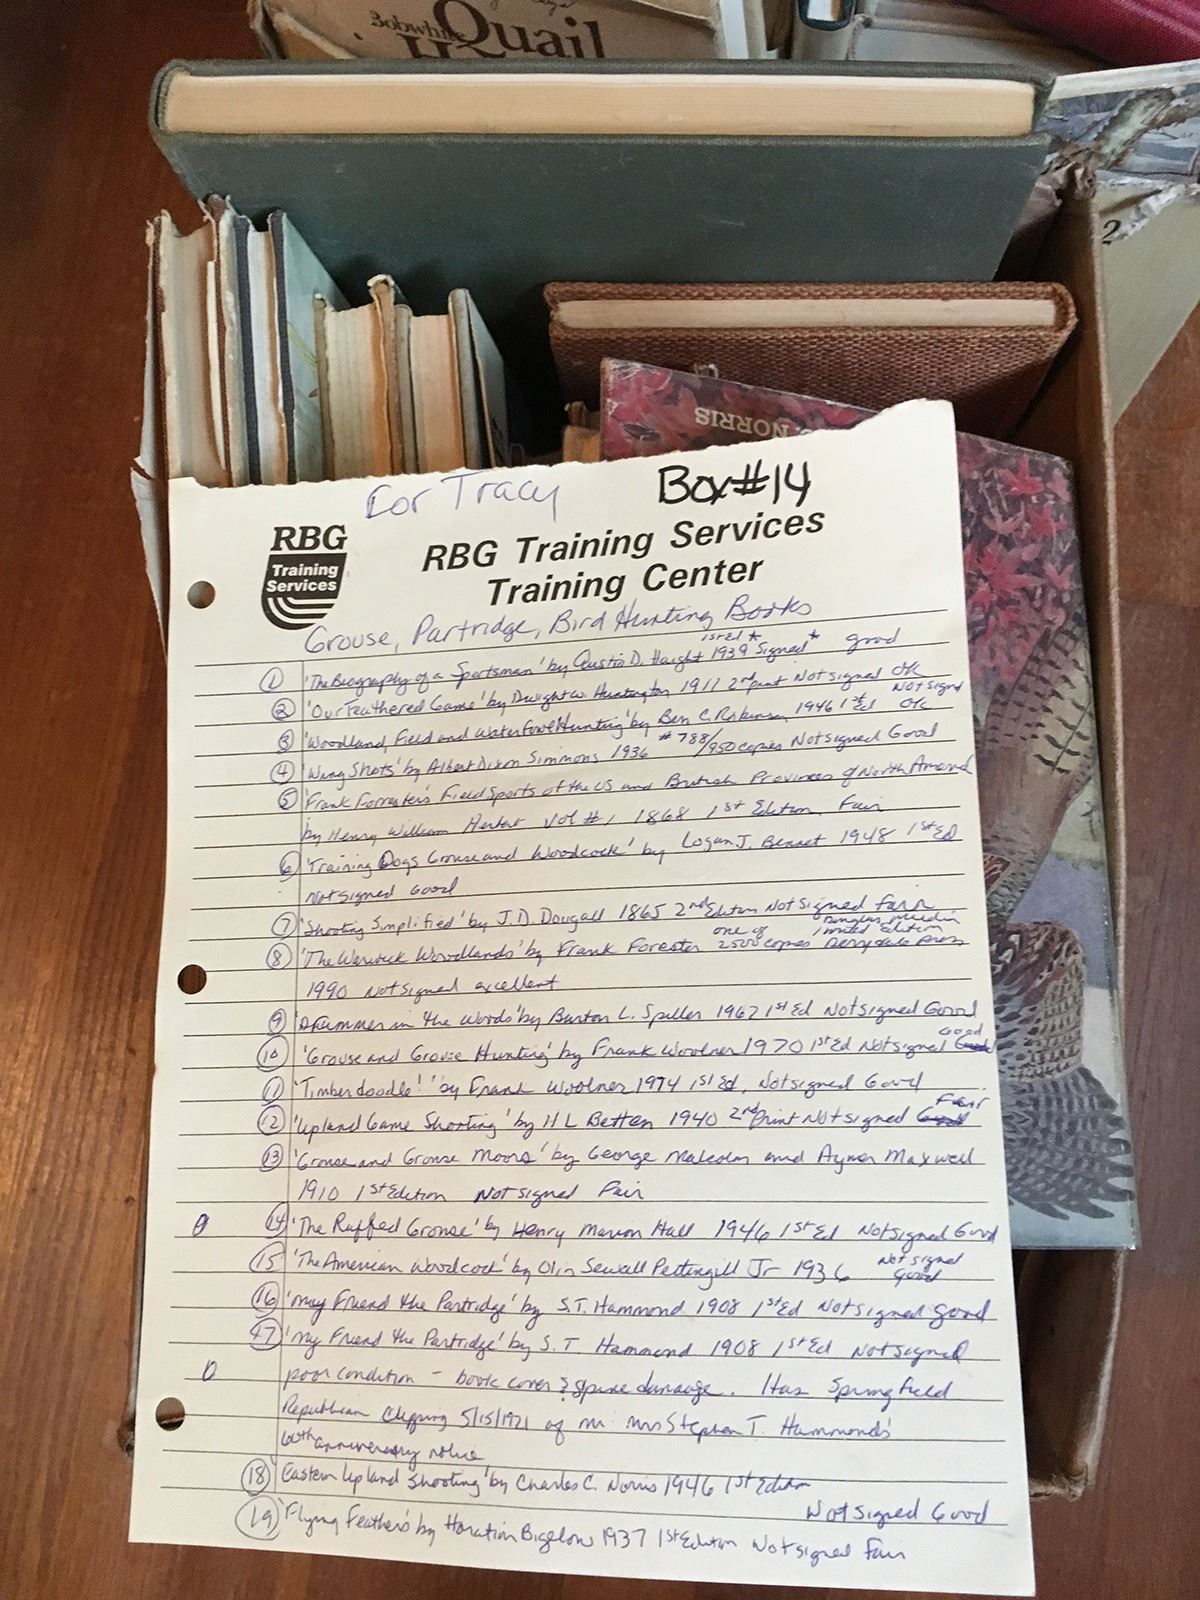 Bobwhite Quail
2
NORRIS
For Tracy Box#14
RBG
Training
Services
RBG Training Services
Training Center
Grouse, Partridge, Bird Hunting Books
1st Ed * *
① 'The Biography of a Sportsman' by D. Haight 1939 Signed good
② 'Our Feathered Game' by Dwight W. Huntington 1917 2nd print Not signed OK
Not Signd
③ 'Woodland, Field and Waterfowl Hunting' by Ben C. Robinson 1946 1st Ed OK
④ 'Wing Shots' by Albert Dixon Simmons 1936 #788/950 copies Not Signed Good
⑤ 'Frank Forrester's Field Sports of the US and British Provinces of North America
by Henry William Herbert Vol #1 1868 1st Edition Fair
⑥ 'Training Dogs Grouse and Woodcock' by Logan J. Bennet 1948 1st ED
Not signed Good
⑦ 'Shooting Simplified' by J.D. Dougall 1865 2nd Edition Not Signed Fair
one of limited Edition
⑧ 'The Warwick Woodlands' by Frank Forester 2500 copies Derrydale Press
1990 Not signed excellent
⑨ Drummer in the Woods' by Burton L. Spiller 1962 1st Ed Not Signed Good
Good
⑩ 'Grouse and Grouse Hunting' by Frank Woolner 1970 1st Ed Not signed
⑪ 'Timberdoodle!' by Frank Woolner 1974 1st Ed, Not signed Good
Fair
⑫ 'Upland Game Shooting' by H L Betten 1940 2nd Print Not Signed Good
⑬ 'Grouse and Grouse Moors' by George Malcolm and Aymer Maxwell
1910 1st Edition Not signed Fair
0 ⑭ 'The Ruffed Grouse' by Henry Marion Hall 1946 1st Ed Not signed Good
⑮ 'The American Woodcock' by Olin Sewall Pettingill Jr 1936 Not signed
Good
⑯ 'My Friend the Partridge' by S.T. Hammond 1908 1st Ed Not Signed good
⑰ 'My Friend the Partridge' by S. T. Hammond 1908 1st Ed Not signed
0 poor condition - book cover & spine damage. Has Springfield
Republican Clipping 5/15/1921 of Mr Mrs Stephen T. Hammonds'
60th anniversary notice
⑱ Eastern Upland Shooting' by Charles C. Norris 1946 1st Edition
Not signed Good
⑲ 'Flying Feathers' by Horation Bigelow 1937 1st Edition Not signed Fair